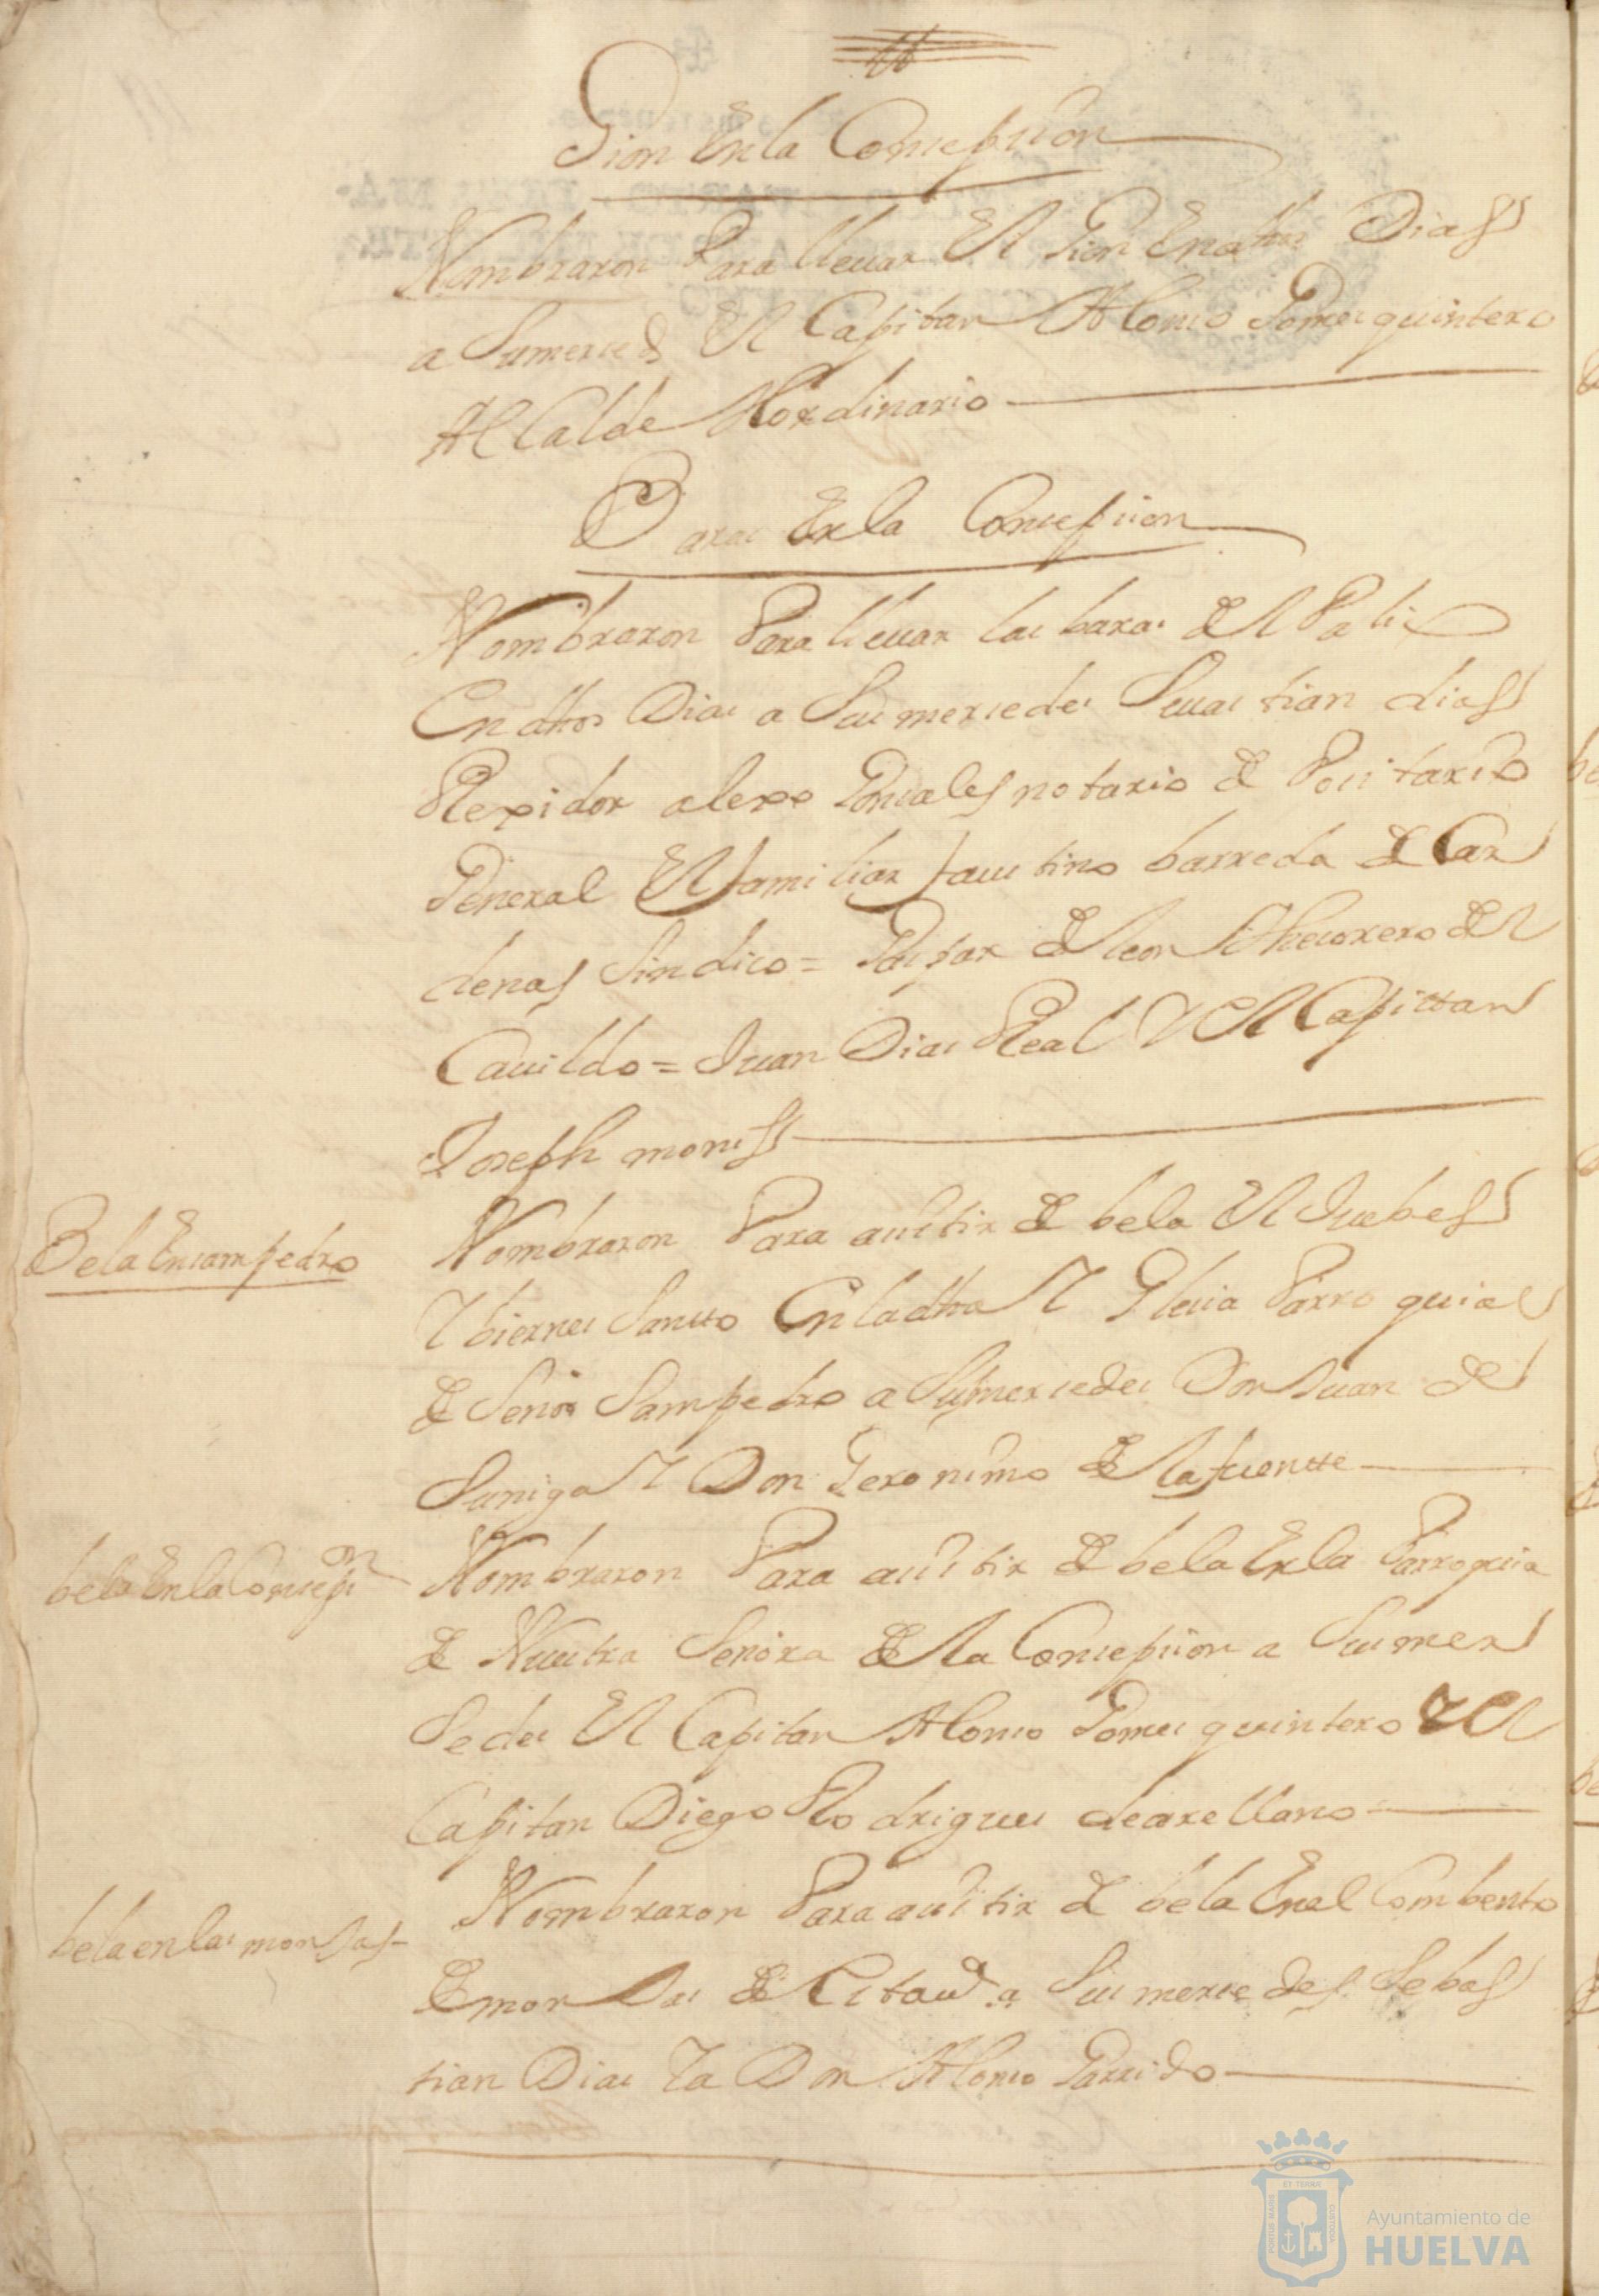 Gion En la Concepcion
Nombraron Para lleuar El Gion En dhos Dias
a Sumerced El Capitan Alonso Gomes quintero
Alcalde Hordinario
Baras En la Concepcion
Nombraron Para lleuar las baras del Palio
En dhos Dias a Sus mercedes Seuastian dias
Rexidor alexo Gonsales notario de Pocitario
General El familiar faustino barreda de Car
denas Sindico = Gaspar de leon Thesorero del
Cauildo = Juan Dias Real Y El Capittan
Joseph monis
Bela En san pedro
Nombraron Para asistir de bela El Juebes
Y biernes Santto En la dha Yglecia Parroquial
de Señor Sam pedro a Sus mercedes Don Juan de
Suniga Y Don Geronimo de la fuentte
bela En la Concepon
Nombraron Para asistir de bela En la Parroquia
de Nuestra Señora de la Concepcion a Sus mer
sedes El Capitan Alonso Gomes quintero Y El
Capitan Diego Rodrigues de arellano
bela en las monjas
Nombraron Para asistir de bela En el Combento
de monjas de Esta Va a Sus mercedes Sebas
tian Dias Y a Don Alonso Garrido
Ayuntamiento de
HUELVA